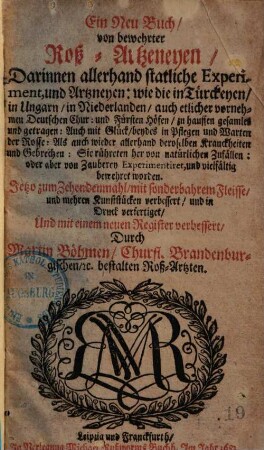 Ein Neu Buch/
von bewehrter
Roß-Artzeneyen/
Darinnen allerhand statliche Experi-
ment, und Artzneyen; wie die in Türckeyen/
in Ungarn/ in Niederlanden/ auch etlicher vorneh-
men Deutschen Chur- und Fürsten Höfen/ zu hauffen gesamlet
und getragen: Auch mit Glück/ beydes in Pflegen und Warten
der Rosse: Als auch wieder allerhand derselben Kranckheiten
und Gebrechen: Sie rühreten her von natürlichen Zufällen:
oder aber von Zauberey Experimentiret, und vielfältig
bewehret worden.
Jetzo zum Zehendenmahl/ mit sonderbahrem Fleisse/
und mehren Kunststücken verbessert/ und in
Druck verfertiget/
Und mit einem neuen Register verbessert/
Durch
Martin Böhmen/ Churfl. Brandenbur-
gischen/ ꝛc. bestalten Roß-Artzten.
19
Leipzig und Franckfurth/